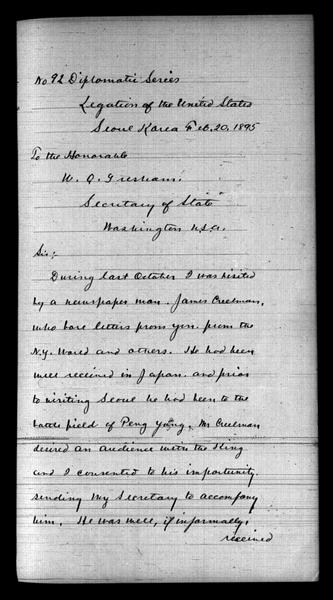 No 92 Diplomatic Series
Legation of the United States
Seoul Korea Feb. 20, 1895
To the Honorable
W. Q. Gresham:
Secretary of State
Washington U.S.A.
Sir:-
During last October I was visited
by a newspaper man. James Creelman,
who bore letters from you. from the
N.Y. World and others. He had been
well received in Japan. and prior
to visiting Seoul he had been to the
battle field of Peng Yang. Mr Creelman
desired an Audience with the King
and I consented to his importunity.
sending my Secretary to accompany
him. He was well, if informally,
received